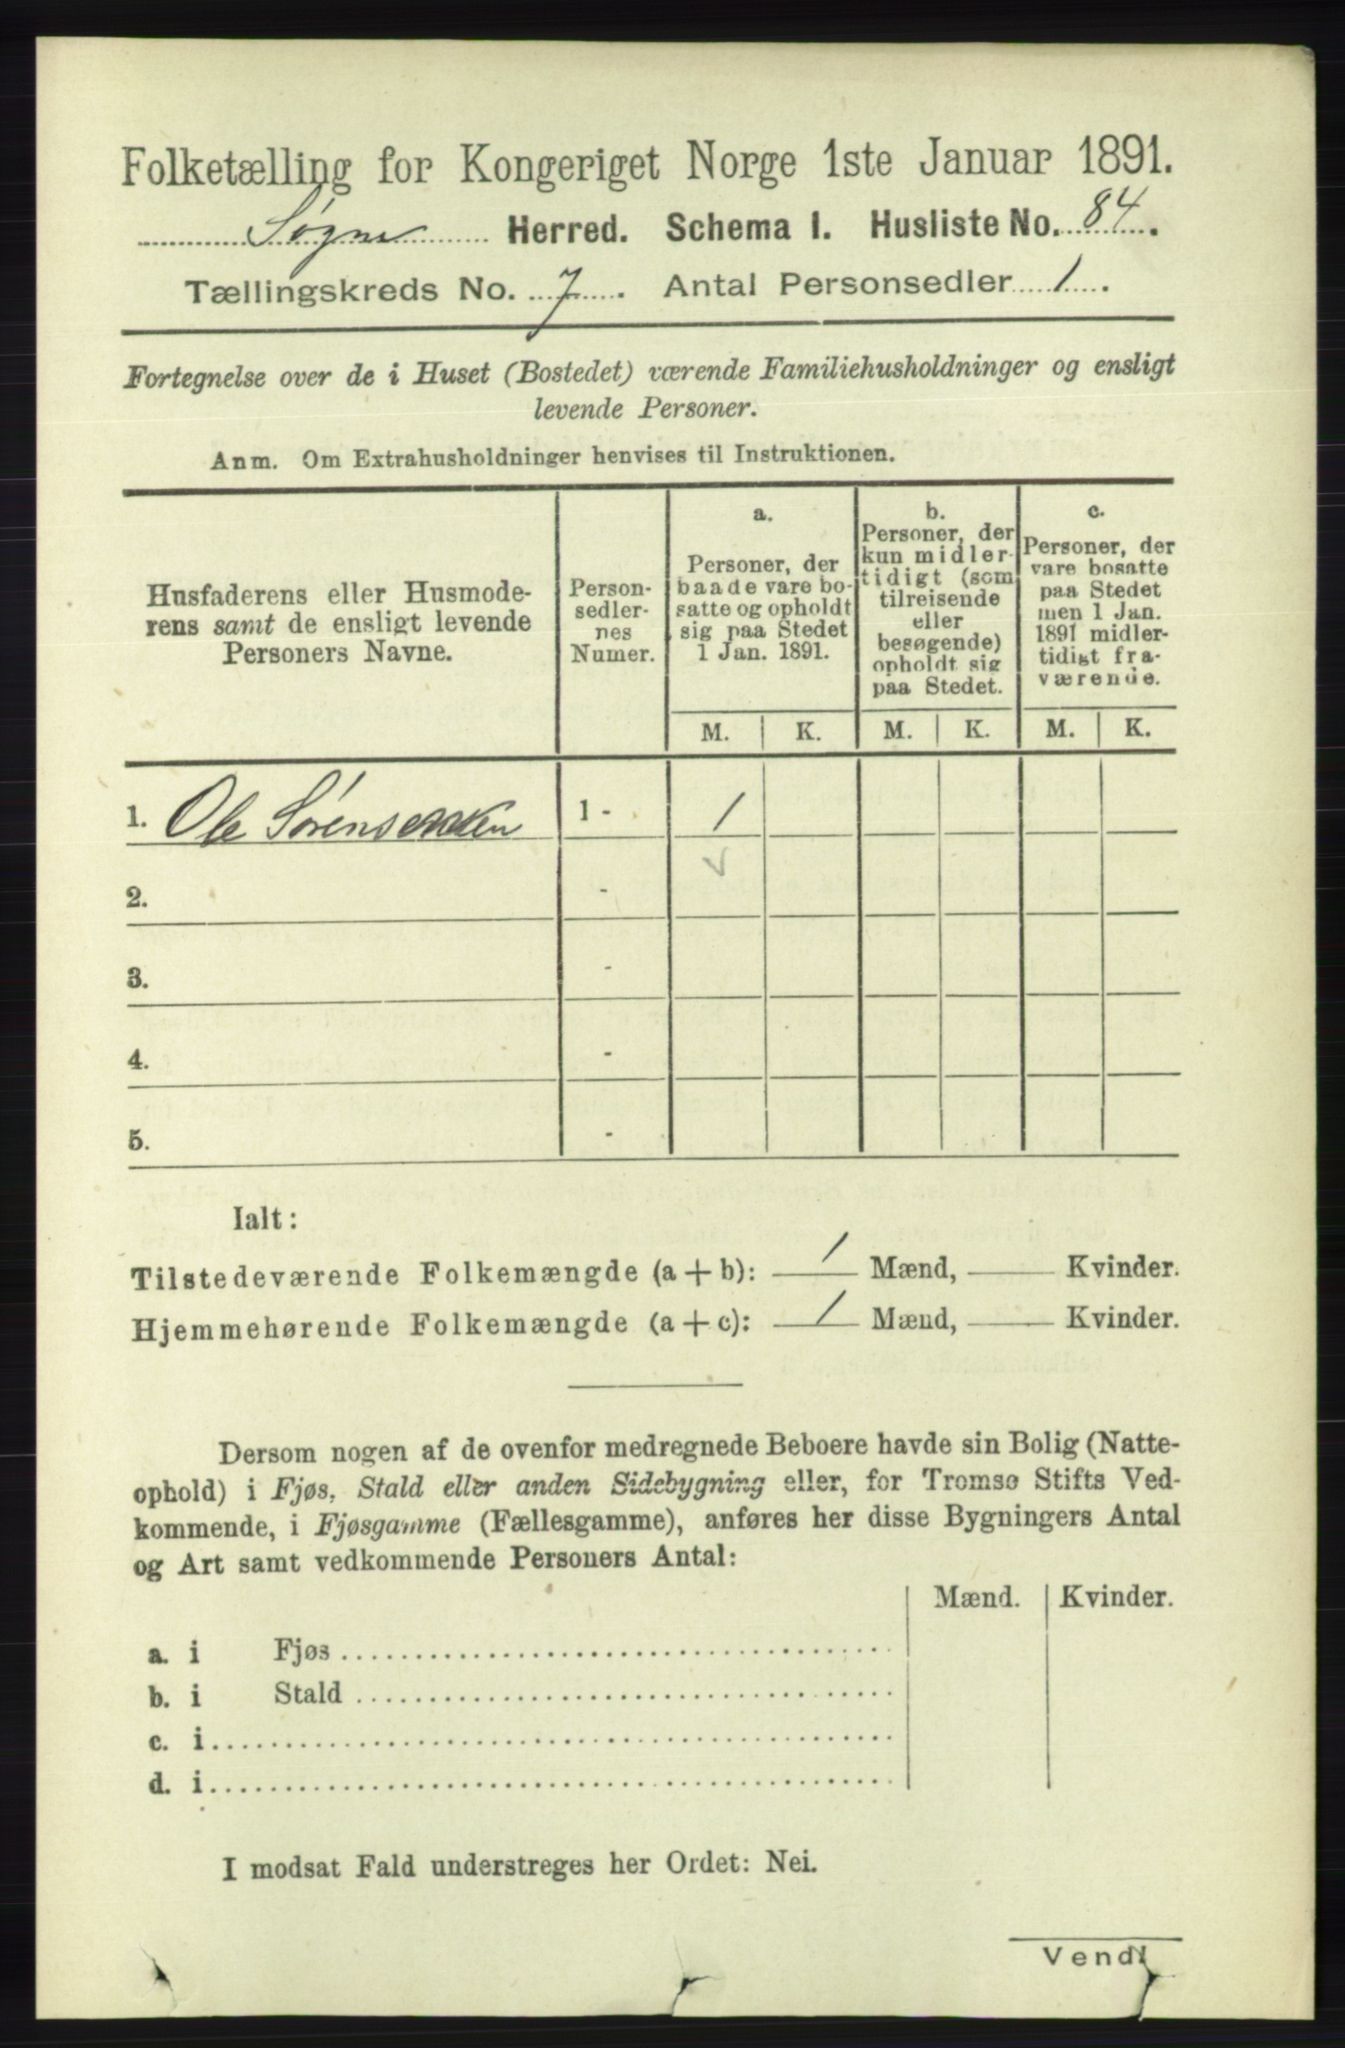 Folketælling for Kongeriget Norge 1ste Januar 1891.
Søgne Herred. Schema I. Husliste No. 84.
Tællingskreds No. 7. Antal Personsedler 1.
Fortegnelse over de i Huset (Bostedet) værende Familiehusholdninger og ensligt
levende Personer.
Anm. Om Extrahusholdninger henvises til Instruktionen.
Husfaderens eller Husmode-
rens samt de ensligt levende
Personers Navne.
Person-
sedler-
nes
Numer.
a.
Personer, der
baade vare bo-
satte og opholdt
sig paa Stedet
1 Jan. 1891.
b.
Personer, der
kun midler-
tidigt (som
tilreisende
eller
besøgende)
opholdt sig
paa Stedet.
c.
Personer, der
vare bosatte
paa Stedet
men 1 Jan.
1891 midler-
tidigt fra-
værende.
M. K. M. K. M. K.
1. Ole 1 - 1
2. -
3. -
4. -
5. -
Ialt:
Tilstedeværende Folkemængde (a + b): 1 Mænd, Kvinder.
Hjemmehørende Folkemængde (a + c): 1 Mænd, Kvinder.
Dersom nogen af de ovenfor medregnede Beboere havde sin Bolig (Natte-
ophold) i Fjøs, Stald eller anden Sidebygning eller, for Tromsø Stifts Ved-
kommende, i Fjøsgamme (Fællesgamme), anføres her disse Bygningers Antal
og Art samt vedkommende Personers Antal:
Mænd. Kvinder.
a. i Fjøs
b. i Stald
c. i
d. i
I modsat Fald understreges her Ordet: Nei.
Vend!